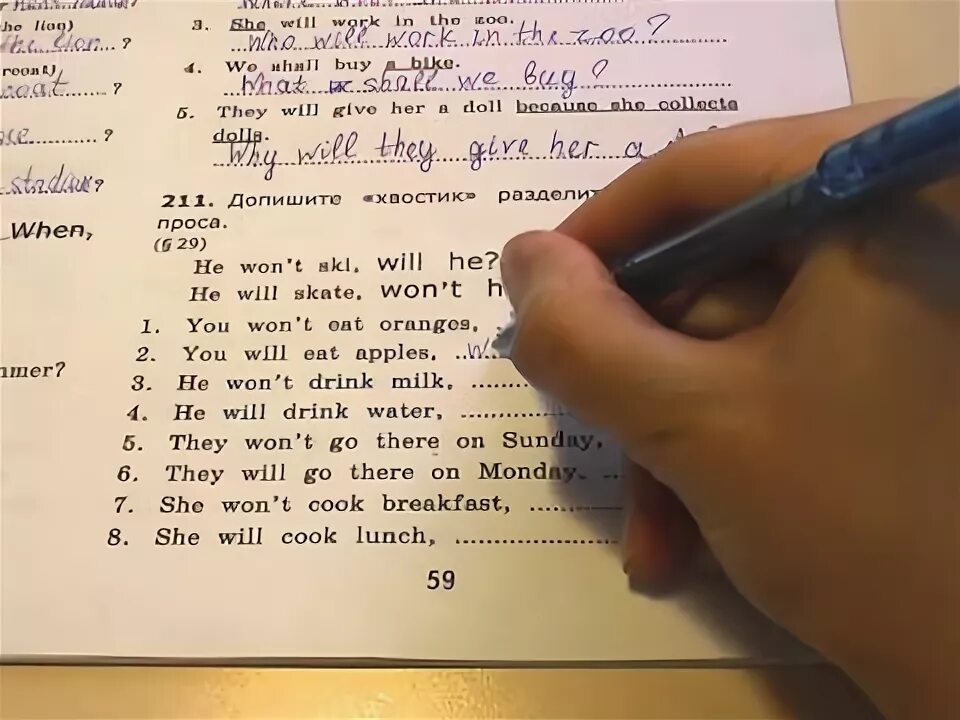 (the lion)
?
?
?
?
When,
mmer?
3. She will work in the zoo.
Who will work in the zoo?
4. We shall buy a bike.
What shall we buy?
5. They will give her a doll because she collects
dolls.
Why will they give her a
211. Допишите «хвостик» раздели
проса.
(§ 29)
He won't ski, will he?
He will skate, won't h
1. You won't eat oranges,
2. You will eat apples, w
3. He won't drink milk,
4. He will drink water,
5. They won't go there on Sunday,
6. They will go there on Monday.
7. She won't cook breakfast,
8. She will cook lunch,
59